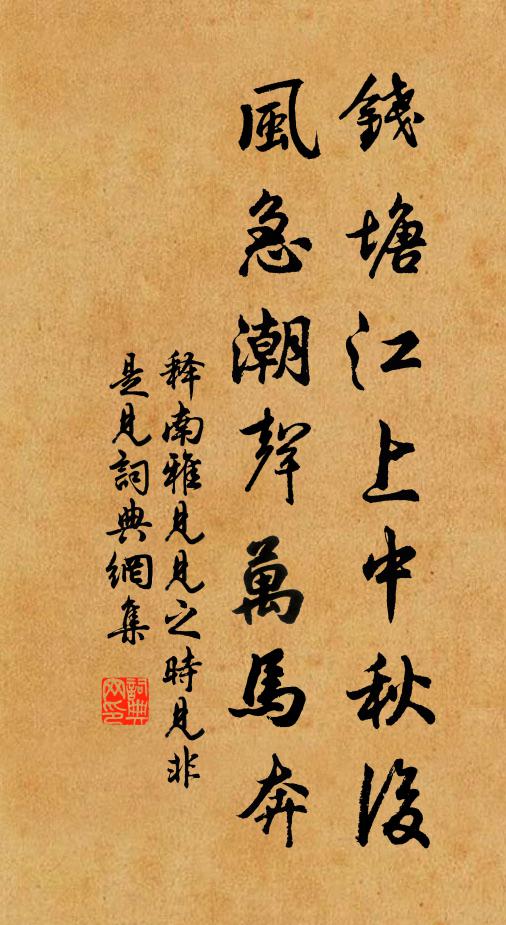 錢塘江上中秋後
風急潮聲萬馬奔
释南雅見見之時見非
是見詞典網集
詞典
网印